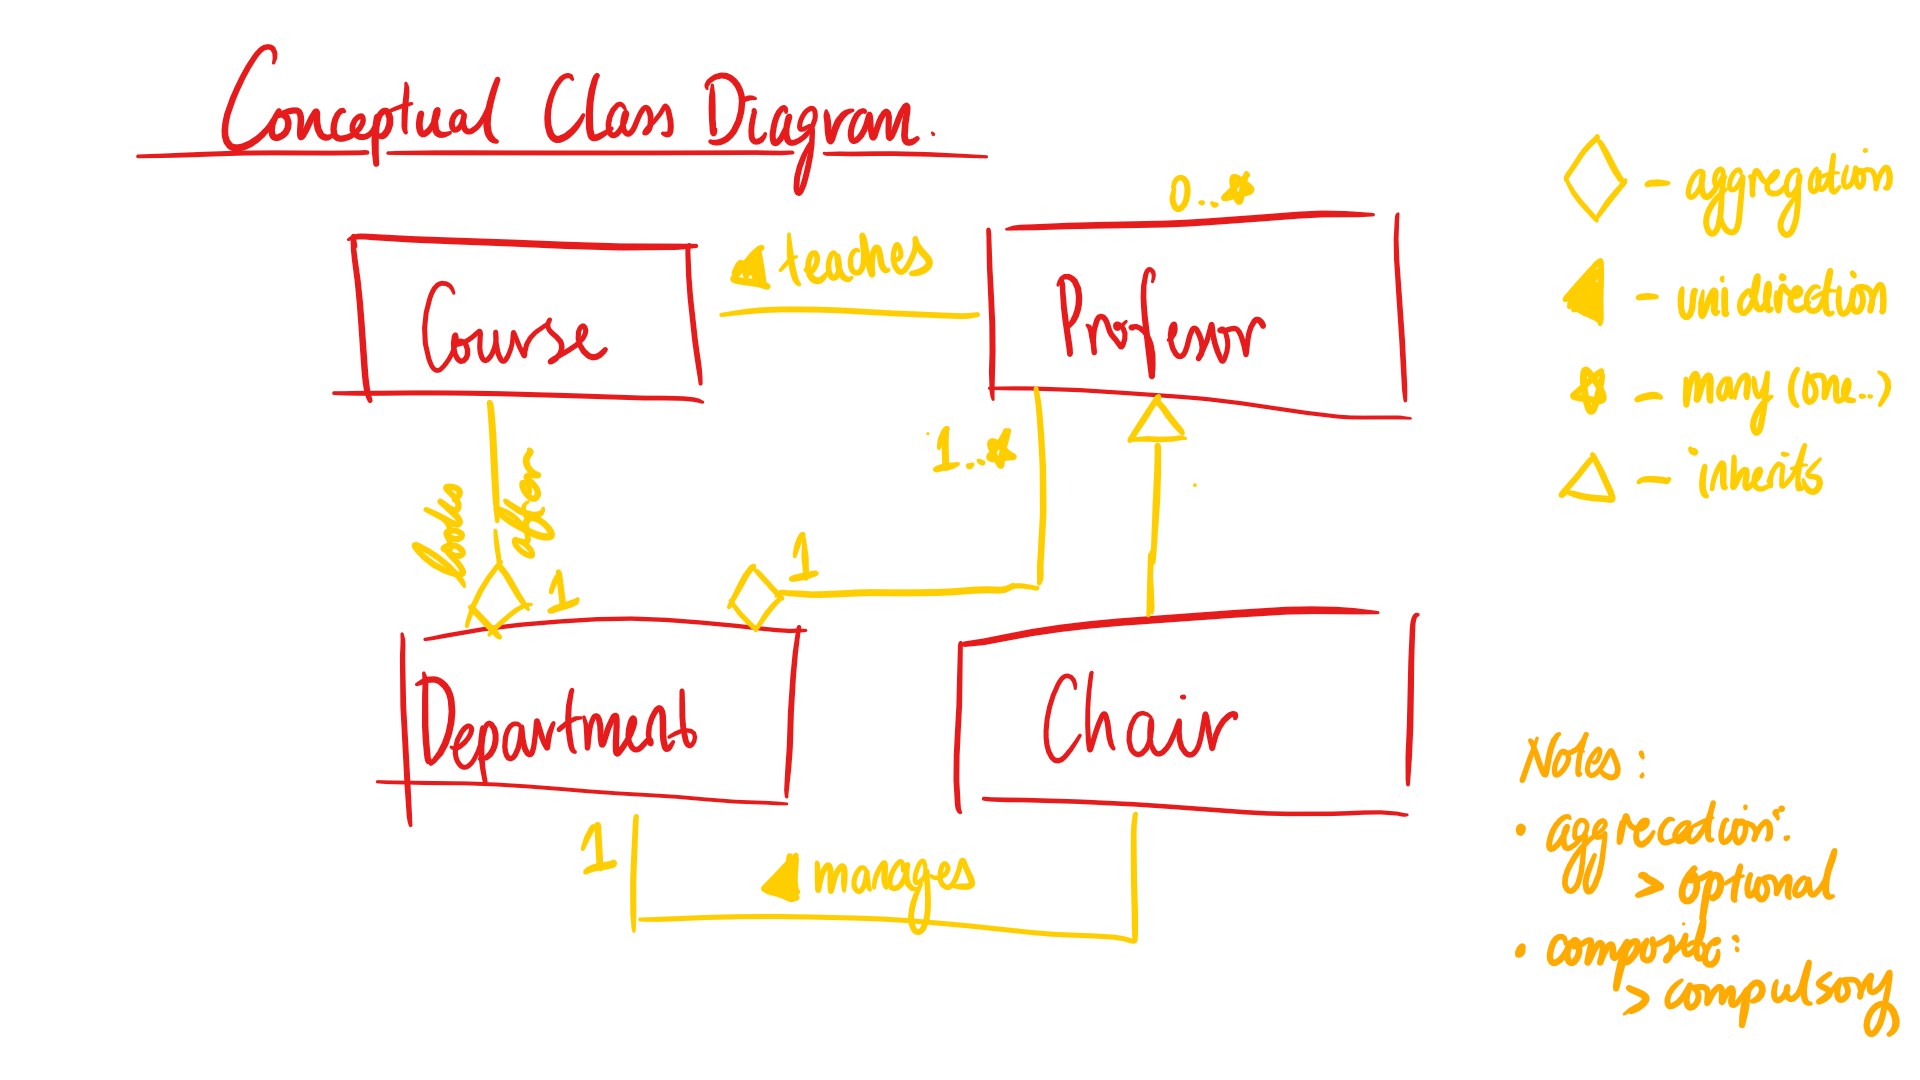 Conceptual Class Diagram.
0..*
teaches
Course
Profesor
1..*
looks
after
1
1
Department
Chair
1
manages
- aggregation
- unidirection
- many (one..)
- inherits
Notes:
• aggrecation:
> optional
• composite:
> compulsory